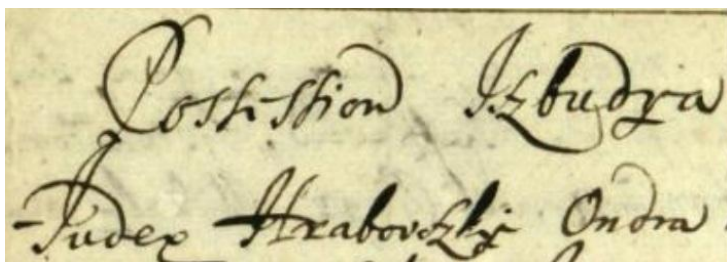 Possession Izbudya
Judex Hrabovszky Ondra